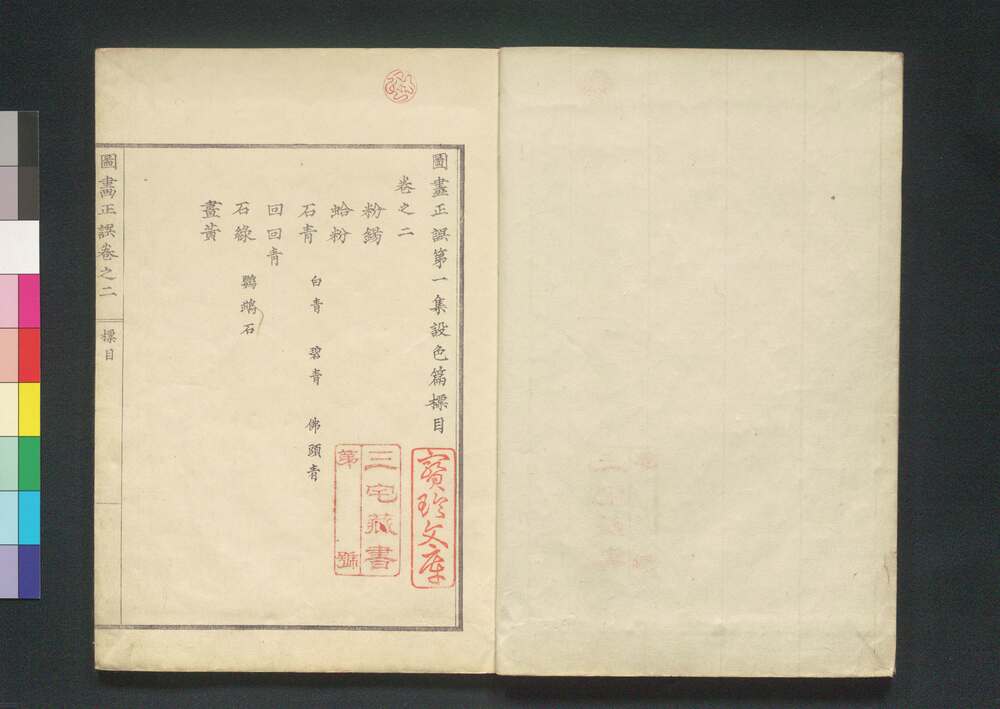 圖畫正誤第一集設色篇標目
卷之二
粉錫
蛤粉
石青 白青 碧青 佛頭青
回回青
石綠 鸚鵡石
畫黃
圖畫正誤卷之二 標目
寳玲文庫
三宅藏書
第 號